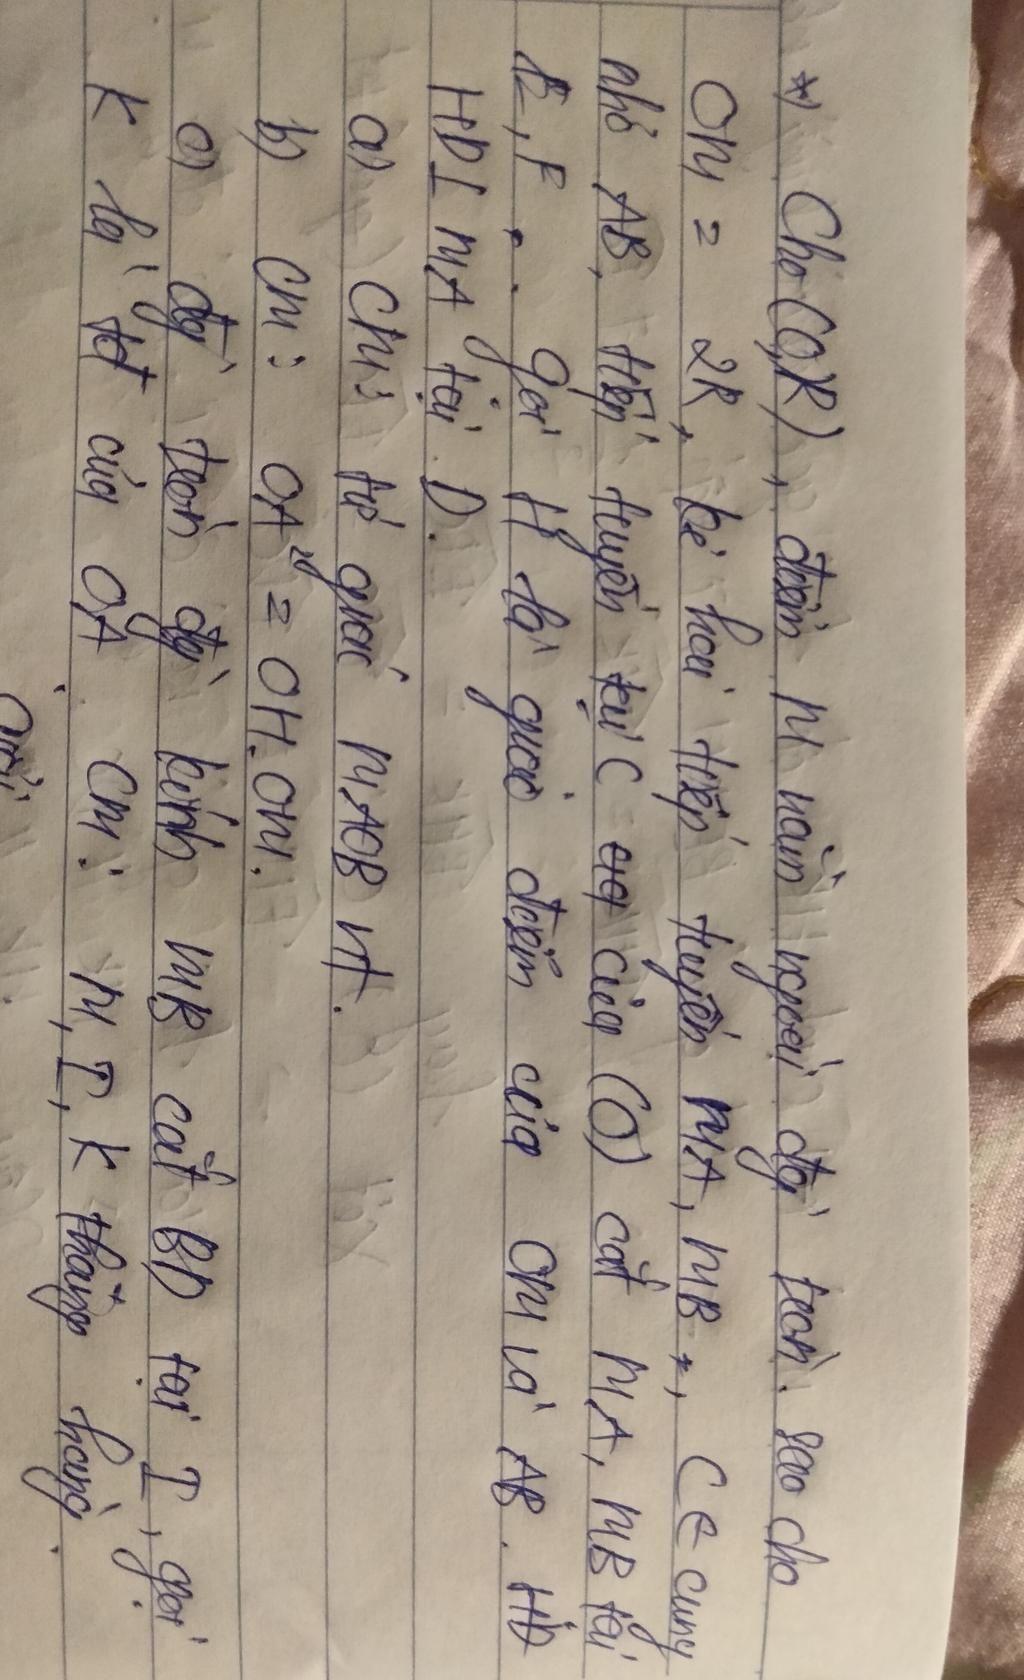 *) Cho (O,R), điểm M nằm ngoài đg' tròn. sao cho
OM = 2R, kẻ hai tiếp tuyến MA, MB, C ∈ cung
nhỏ AB, tiếp tuyến tại C của (O) cắt MA, MB tại
E, F. gọi H là giao điểm của OM và AB. HD
HD ⊥ MA tại D.
a) CM: tứ giác MAOB nt.
b) CM: OA² = OH.OM.
c) đg' tròn đg' kính MB cắt BD tại I, gọi
K là tđ của OA. CM: M, I, K thẳng hàng.